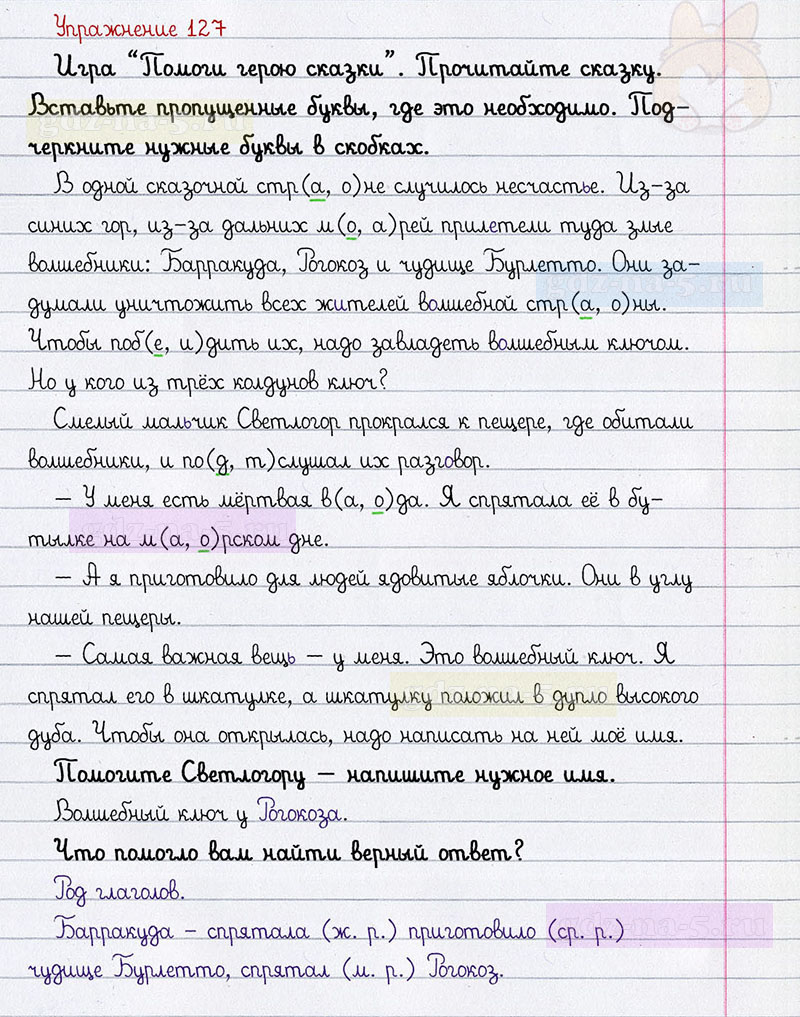 Упражнение 127
Игра “Помоги герою сказки”. Прочитайте сказку.
Вставьте пропущенные буквы, где это необходимо. Под-
черкните нужные буквы в скобках.
В одной сказочной стр(а, о)не случилось несчастье. Из-за
синих гор, из-за дальних м(о, а)рей прилетели туда злые
волшебники: Барракуда, Рогокоз и чудище Бурлетто. Они за-
думали уничтожить всех жителей волшебной стр(а, о)ны.
Чтобы поб(е, и)дить их, надо завладеть волшебным ключом.
Но у кого из трёх колдунов ключ?
Смелый мальчик Светлогор прокрался к пещере, где обитали
волшебники, и по(д, т)слушал их разговор.
– У меня есть мёртвая в(а, о)да. Я спрятала её в бу-
тылке на м(а, о)рском дне.
– А я приготовило для людей ядовитые яблочки. Они в углу
нашей пещеры.
– Самая важная вещь – у меня. Это волшебный ключ. Я
спрятал его в шкатулке, а шкатулку положил в дупло высокого
дуба. Чтобы она открылась, надо написать на ней моё имя.
Помогите Светлогору – напишите нужное имя.
Волшебный ключ у Рогокоза.
Что помогло вам найти верный ответ?
Род глаголов.
Барракуда – спрятала (ж. р.) приготовило (ср. р.)
чудище Бурлетто, спрятал (м. р.) Рогокоз.
gdz-na-5.ru
gdz-na-5.ru
gdz-na-5.ru
gdz-na-5.ru
gdz-na-5.ru